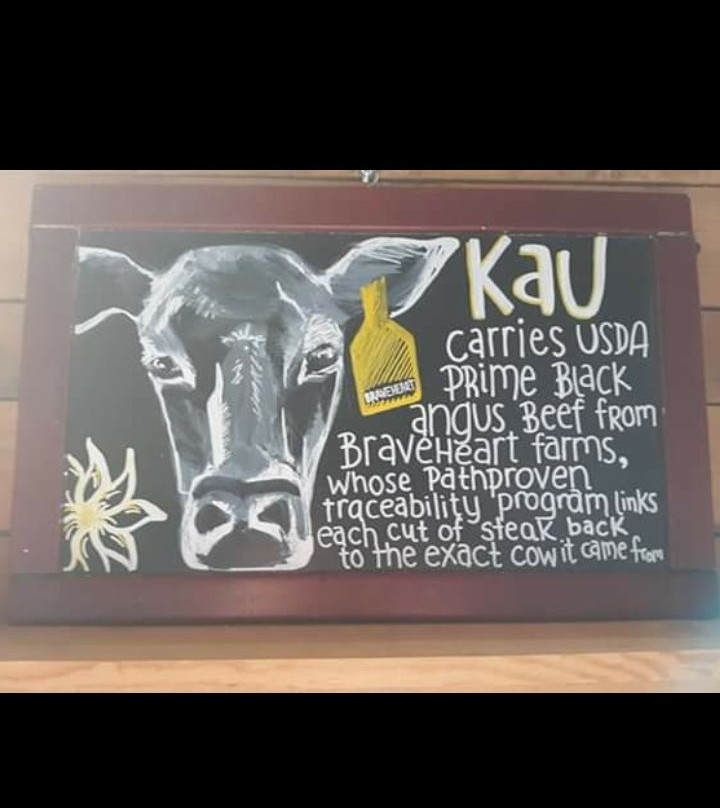 KaU
carries USDA
PRime Black
angus Beef from
BraveHeart farms,
whose Pathproven
traceability program links
each cut of steak back
to the exact cow it came from
BRAVEHEART